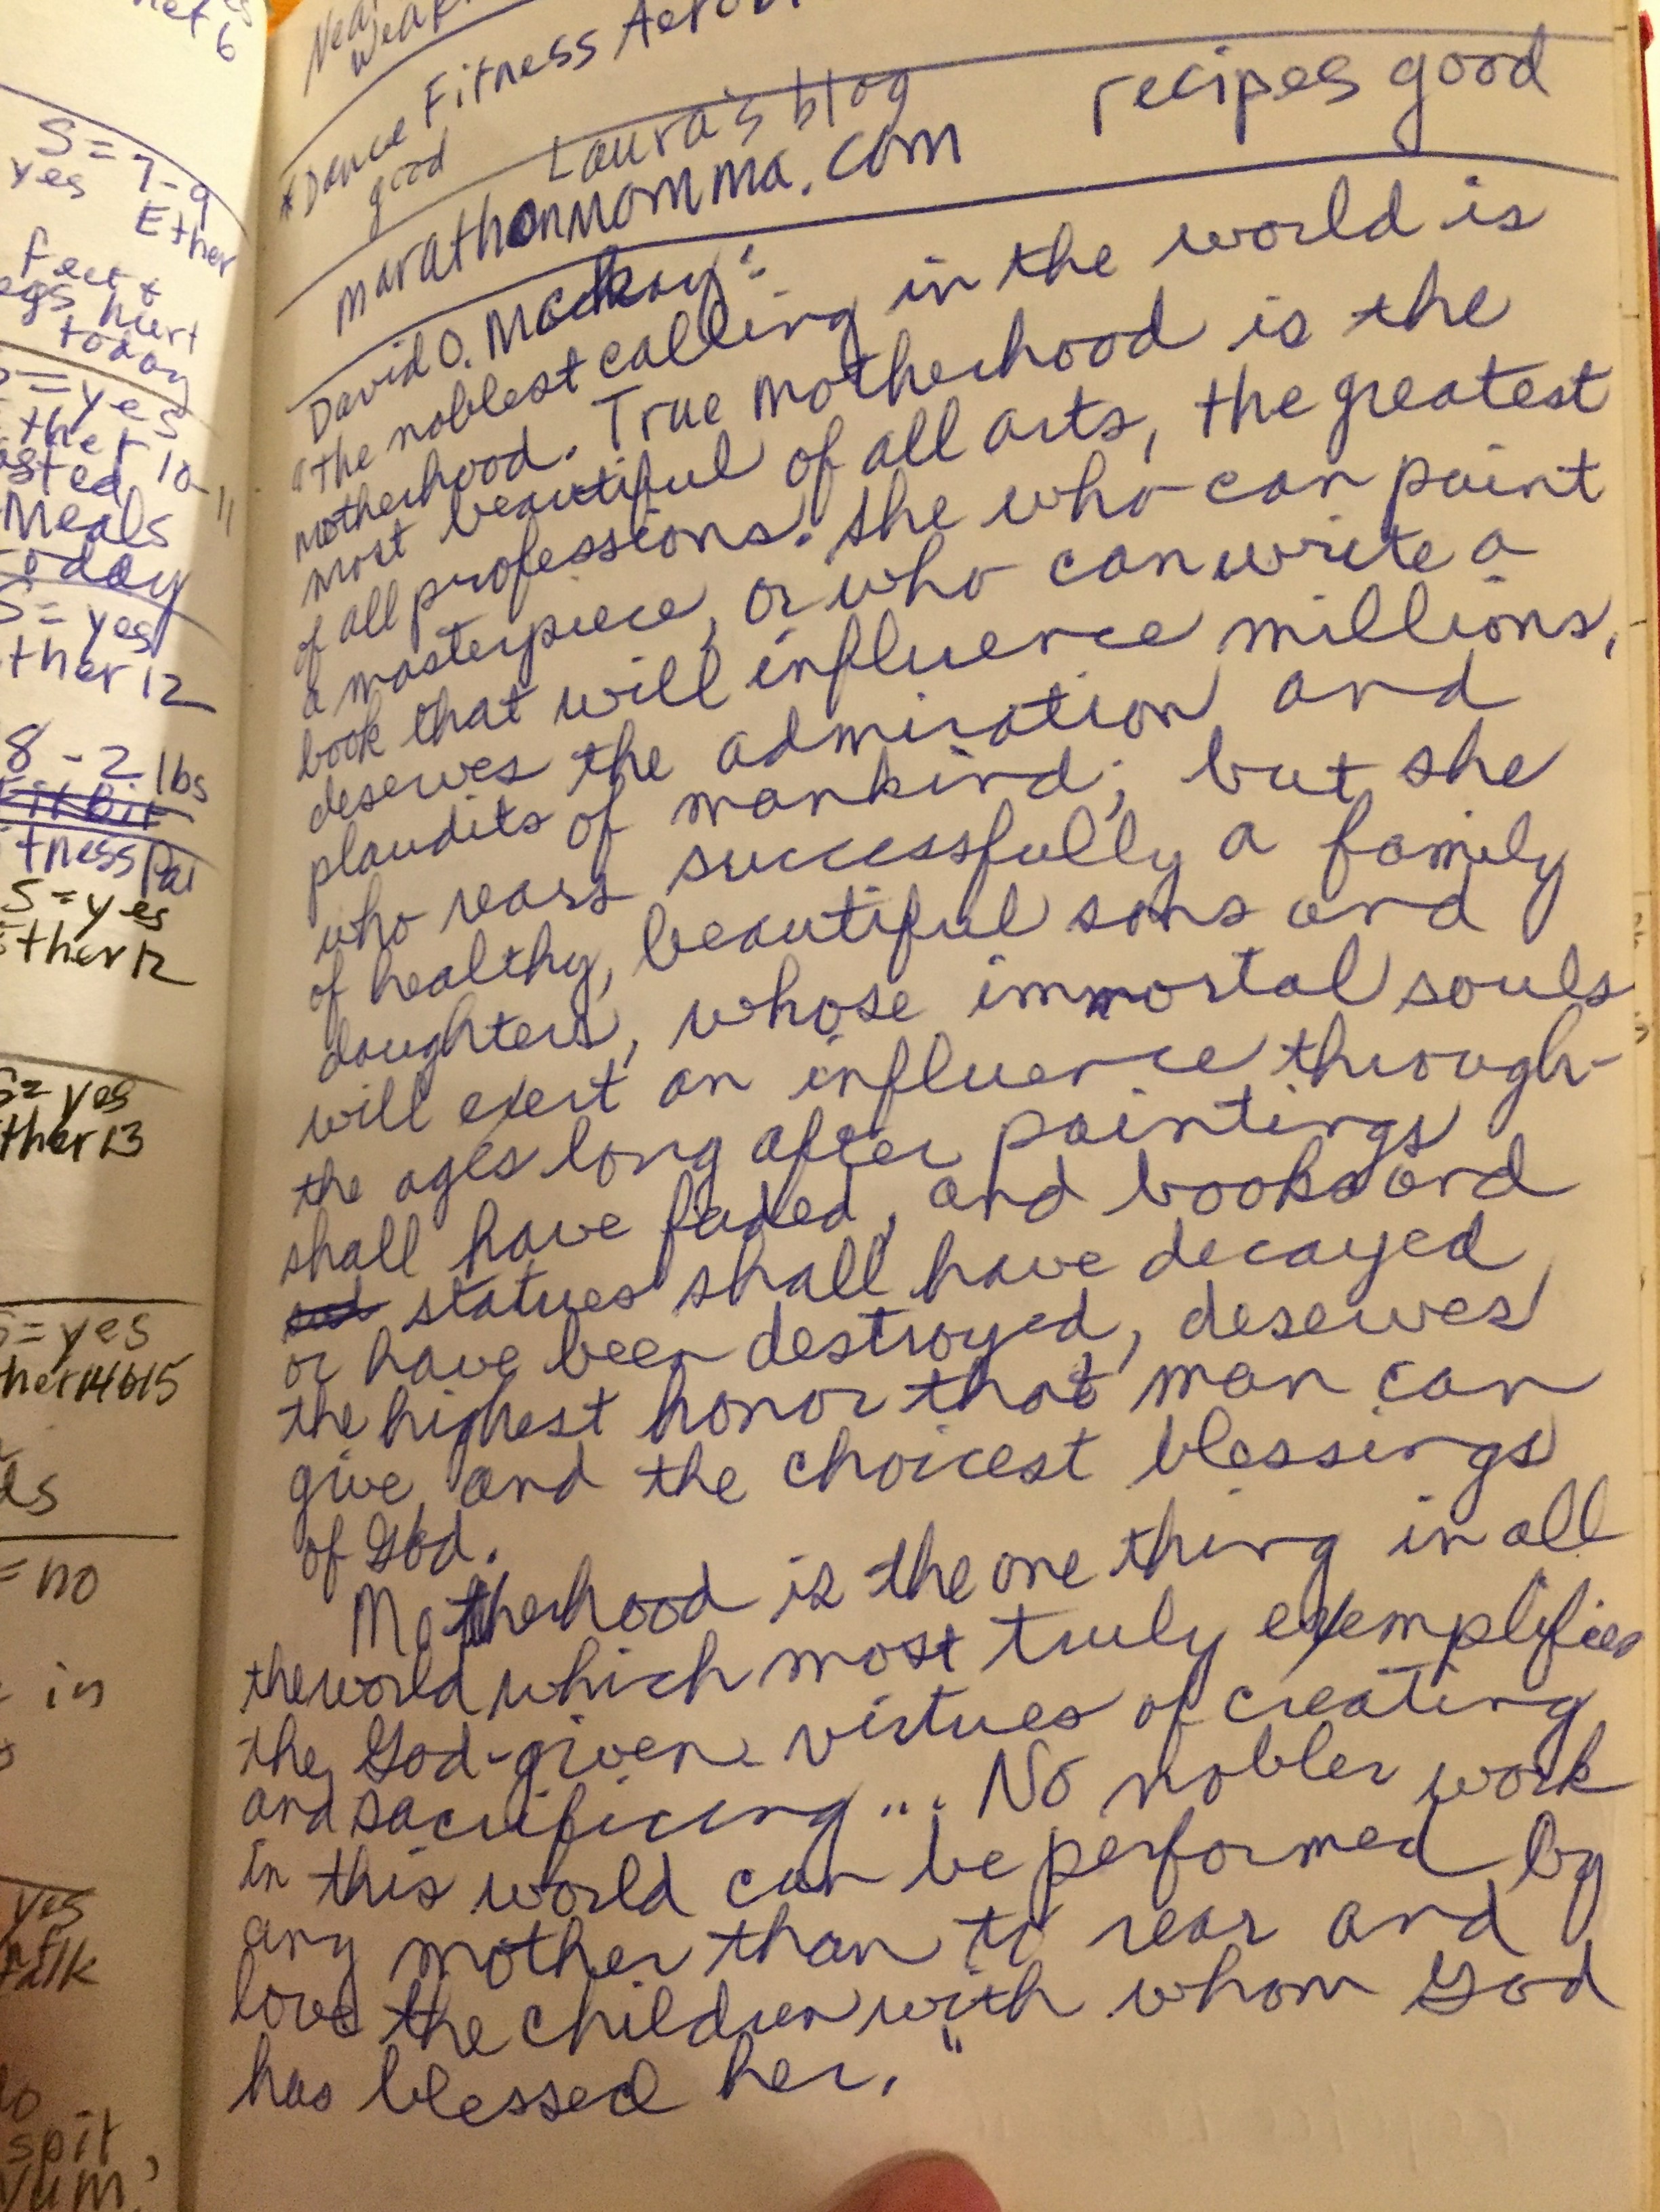 et 6
S = 7-9
yes Ether
feet &
egs hurt
today
S = yes
ther 10-11
asted
Meals
today
S = yes
ther 12
8 - 2 lbs
tness Pal
S = yes
ther 12
S = yes
ther 13
S = yes
her 14 & 15
ds
= no
in
yes
talk
spit,
yum,
Near
*Dance Fitness Aero
good
Laura's blog recipes good
marathonmomma.com
David O. Mackay:
"The noblest calling in the world is
motherhood. True motherhood is the
most beautiful of all arts, the greatest
of all professions. She who can paint
a masterpiece, or who can write a
book that will influence millions,
deserves the admiration and
plaudits of mankind; but she
who rears successfully a family
of healthy, beautiful sons and
daughters, whose immortal souls
will exert an influence through
the ages long after paintings
shall have faded, and books and
statues shall have decayed
or have been destroyed, deserves
the highest honor that man can
give, and the choicest blessings
of God.
Motherhood is the one thing in all
the world which most truly exemplifies
the God-given virtues of creating
and sacrificing... No nobler work
in this world can be performed by
any mother than to rear and
love the children with whom God
has blessed her."